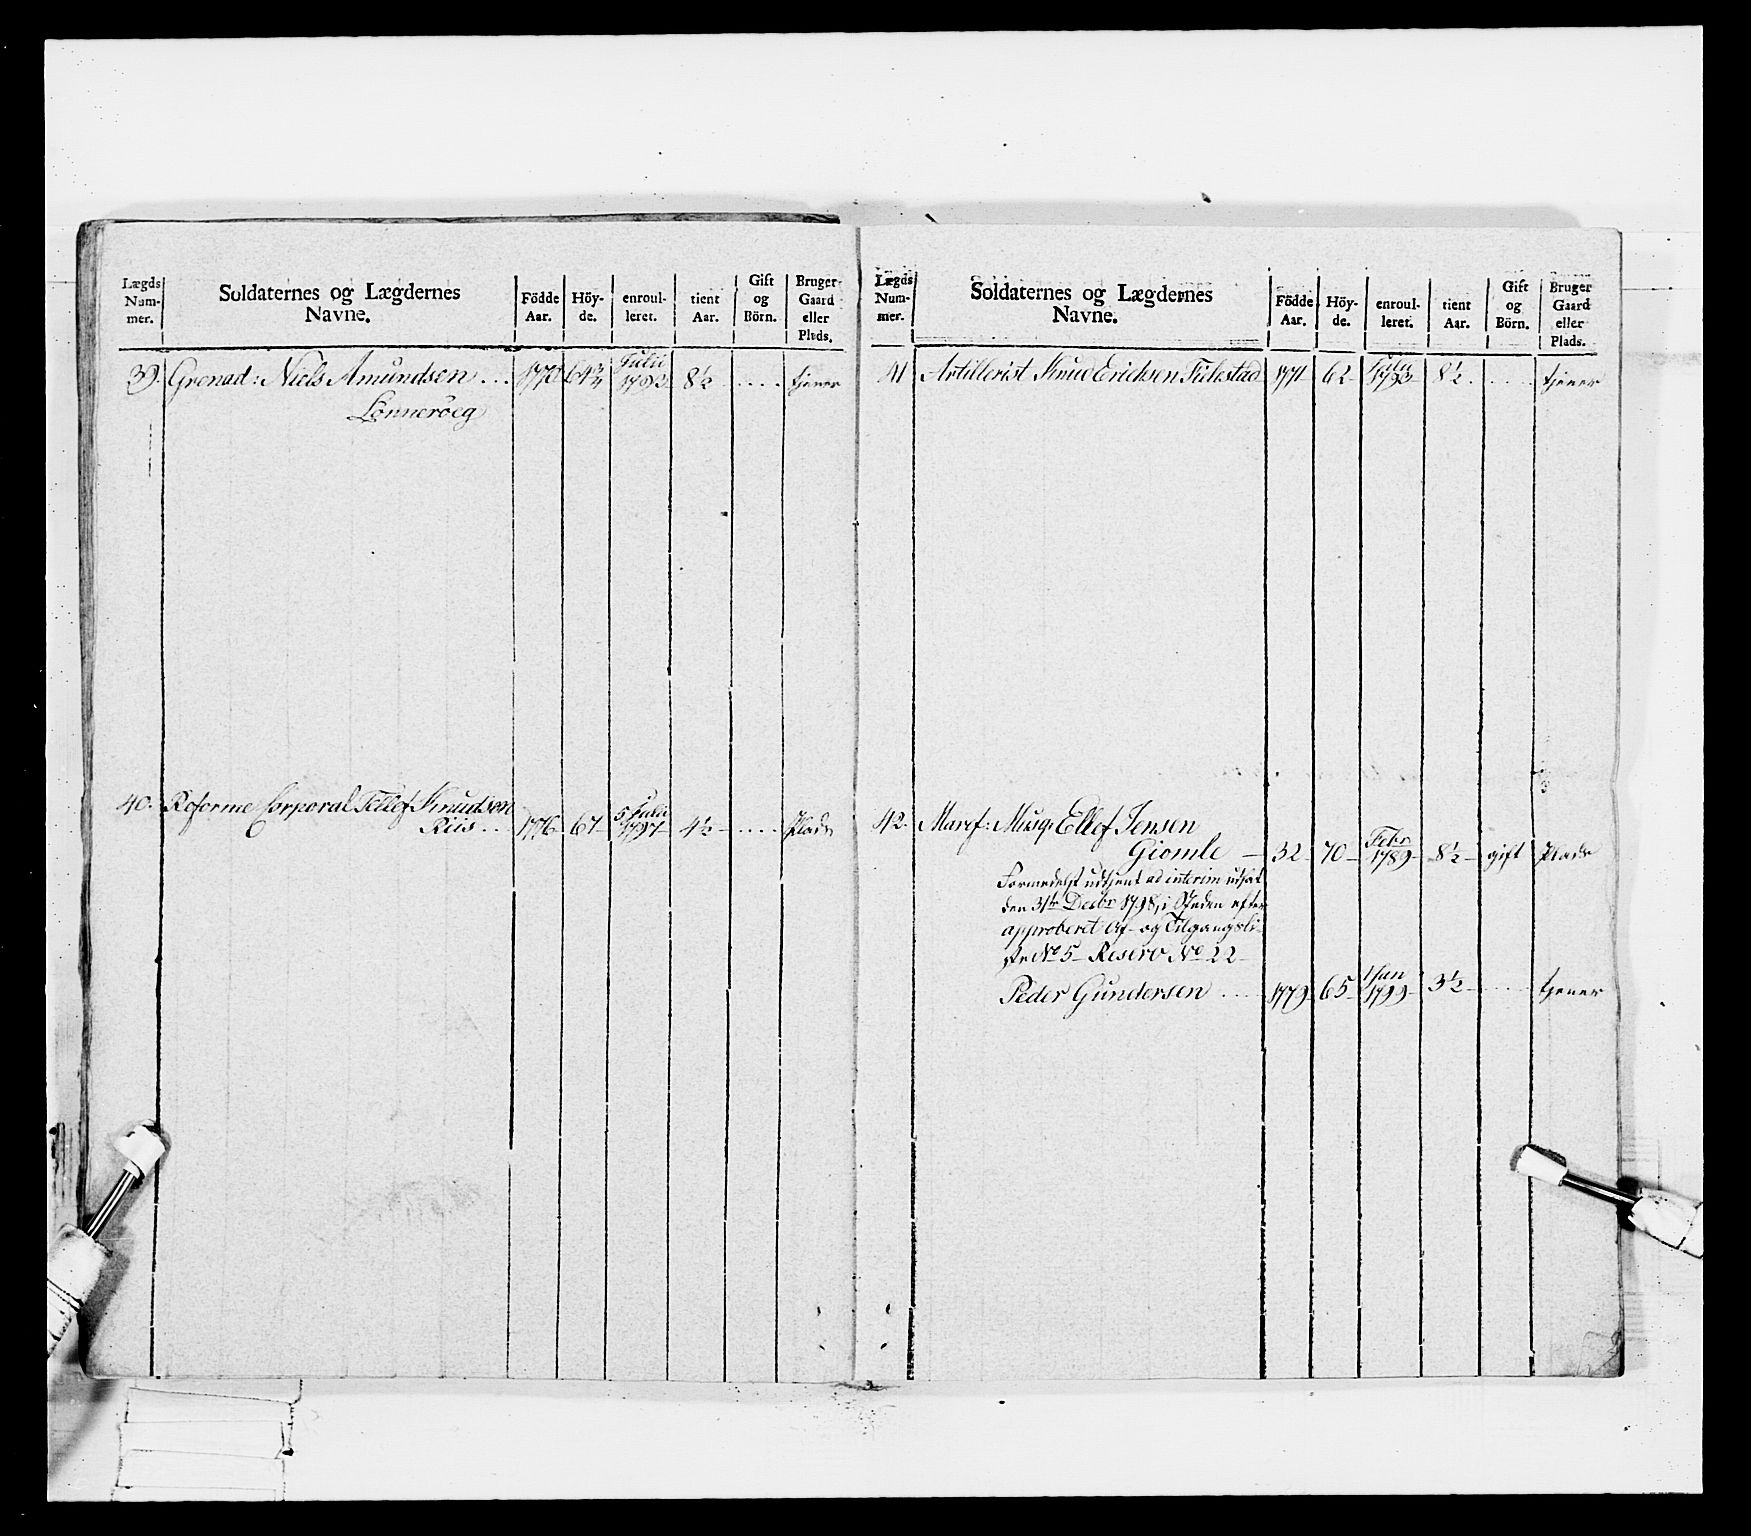 Lægds Num- mer. | Soldaternes og Lægdernes Navne. | Födde Aar. | Höy- de. | enroul- leret. | tient Aar. | Gift og Börn. | Bruger Gaard eller Plads.
39. Grenad: Niels Amundsen ... 1770 64¾ Julii 1792 8½ .... tjener
Lönneröeg
40. Reforme Corporal Tellef Knudsen
Riis .. 1776 67 5 Julii 1797 4½ .... Plads
Lægds Num- mer. | Soldaternes og Lægdernes Navne. | Födde Aar. | Höy- de. | enroul- leret. | tient Aar. | Gift og Börn. | Bruger Gaard eller Plads.
41 Artillerist Knud Ericksen 1771 62 1793 8½ .... tjener
42. Musq: Ellef Jensen
Giomle — 32 70 Febr 1789 8½ gift Plads
Formedelst udtient ad interim udsat
den 31te Decbr 1798, i Steden efter
approberet Af- og Tilgangsli-
ste No 5 Reserv No 22
Peder Gundersen .... 1779 65 1 Jan 1799 3½ .... tjener